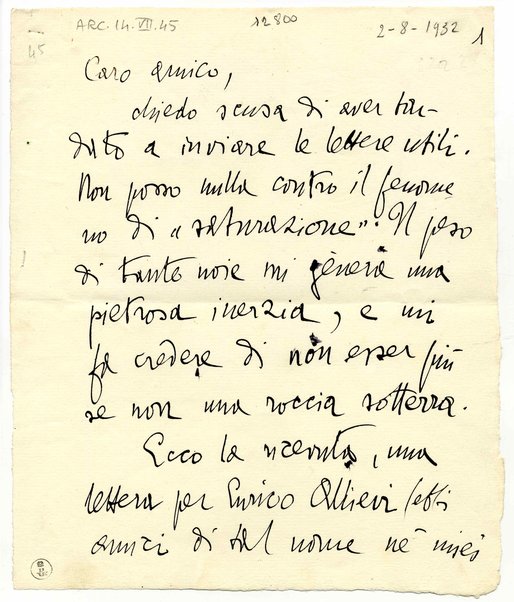 ARC. 14. VII. 45
12800
2-8-1932
1
45
Caro amico,
chiedo scusa di aver tar-
dato a inviare le lettere utili.
Non posso nulla contro il fenome
no di "saturazione". Il peso
di tante noie mi génera una
pietrosa inerzia, e mi
fa credere di non esser più
se non una roccia sotterra.
Ecco la ricevuta, una
lettera per Enrico Allievi (ebbi
amici di tal nome ne' miei